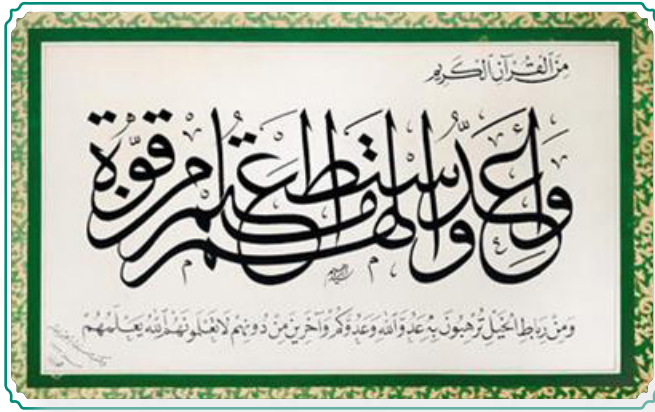 مِنَ الْقُرْآنِ الْكَرِيمِ
وَأَعِدُّوا لَهُم مَّا اسْتَطَعْتُم مِّن قُوَّةٍ
وَمِنْ رِبَاطِ الْخَيْلِ تُرْهِبُونَ بِهِ عَدُوَّ اللهِ وَعَدُوَّكُمْ وَآخَرِينَ مِنْ دُونِهِمْ لَا تَعْلَمُونَهُمْ اللهُ يَعْلَمُهُمْ